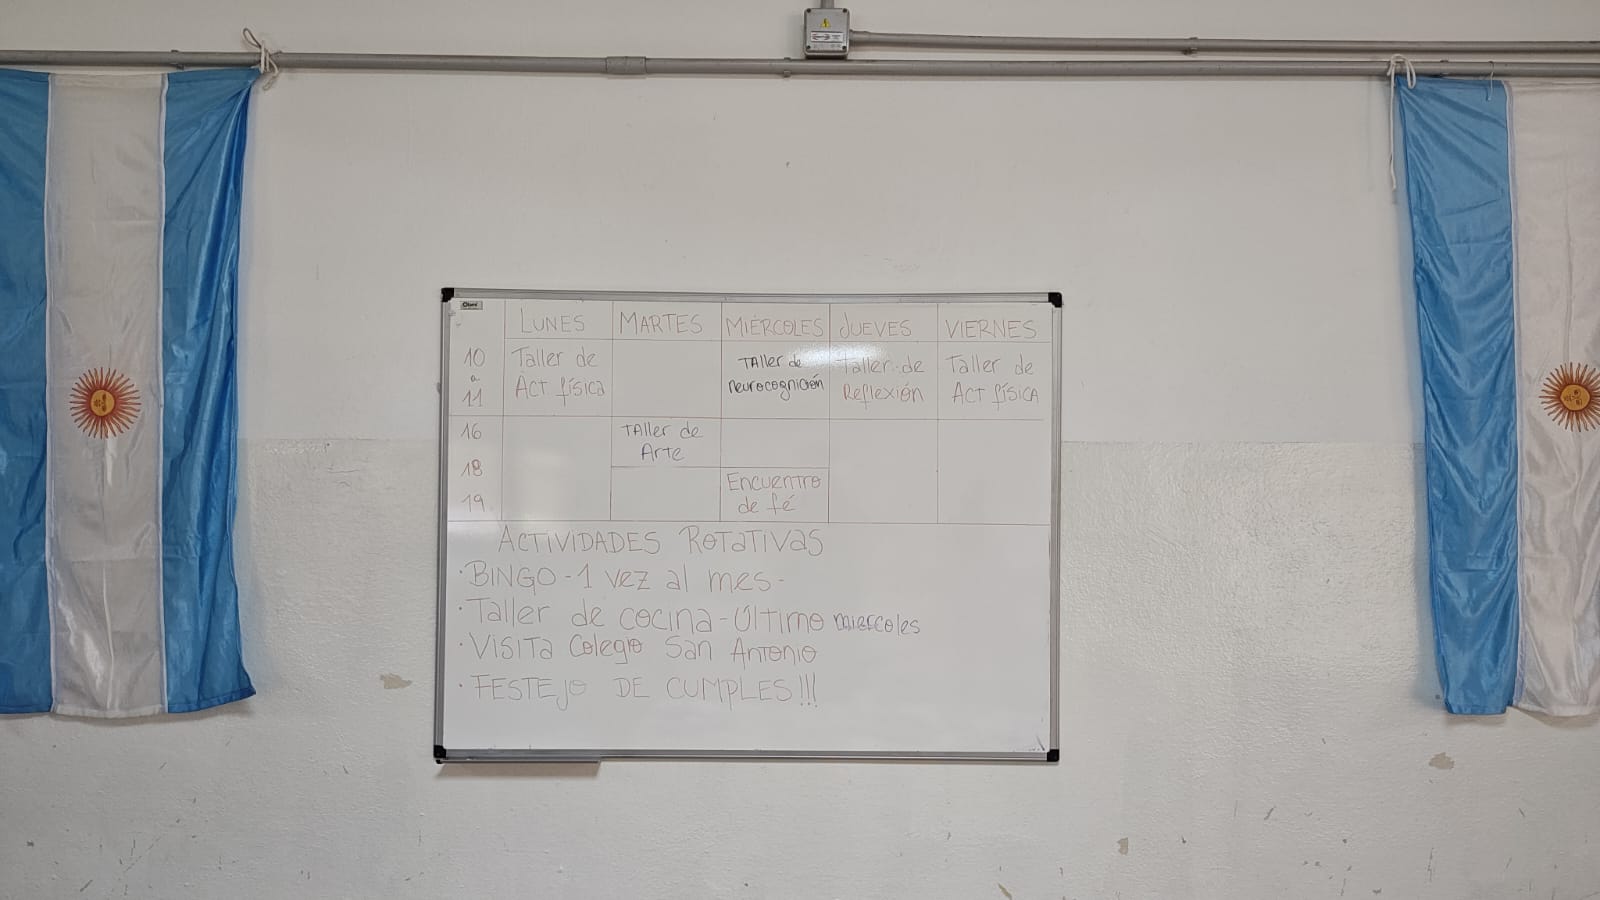 LUNES MARTES MIÉRCOLES JUEVES VIERNES
10 a 11
Taller de
Act física
Taller de
neurocognición
Taller de
Reflexión
Taller de
Act física
16
Taller de
Arte
18
19
Encuentro
de fé
ACTIVIDADES ROTATIVAS
· BINGO - 1 vez al mes -
· Taller de cocina - Último miercoles
· Visita Colegio San Antonio
· FESTEJO DE CUMPLES!!!